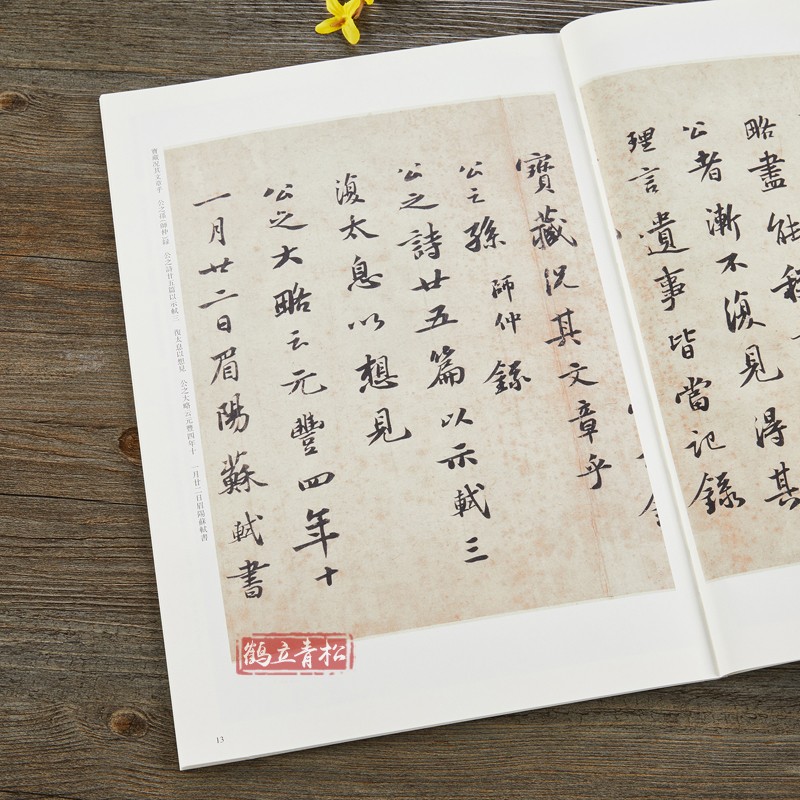 略盡能稱
公者漸不復見得其
理言遺事皆當記錄
寶藏況其文章乎
公之孫師仲錄
公之詩廿五篇以示軾三
復太息以想見
公之大略云元豐四年十
一月廿二日眉陽蘇軾書
寶藏況其文章乎 公之孫師仲錄 公之詩廿五篇以示軾三 復太息以想見 公之大略云元豐四年十 一月廿二日眉陽蘇軾書
鶴立青松
13